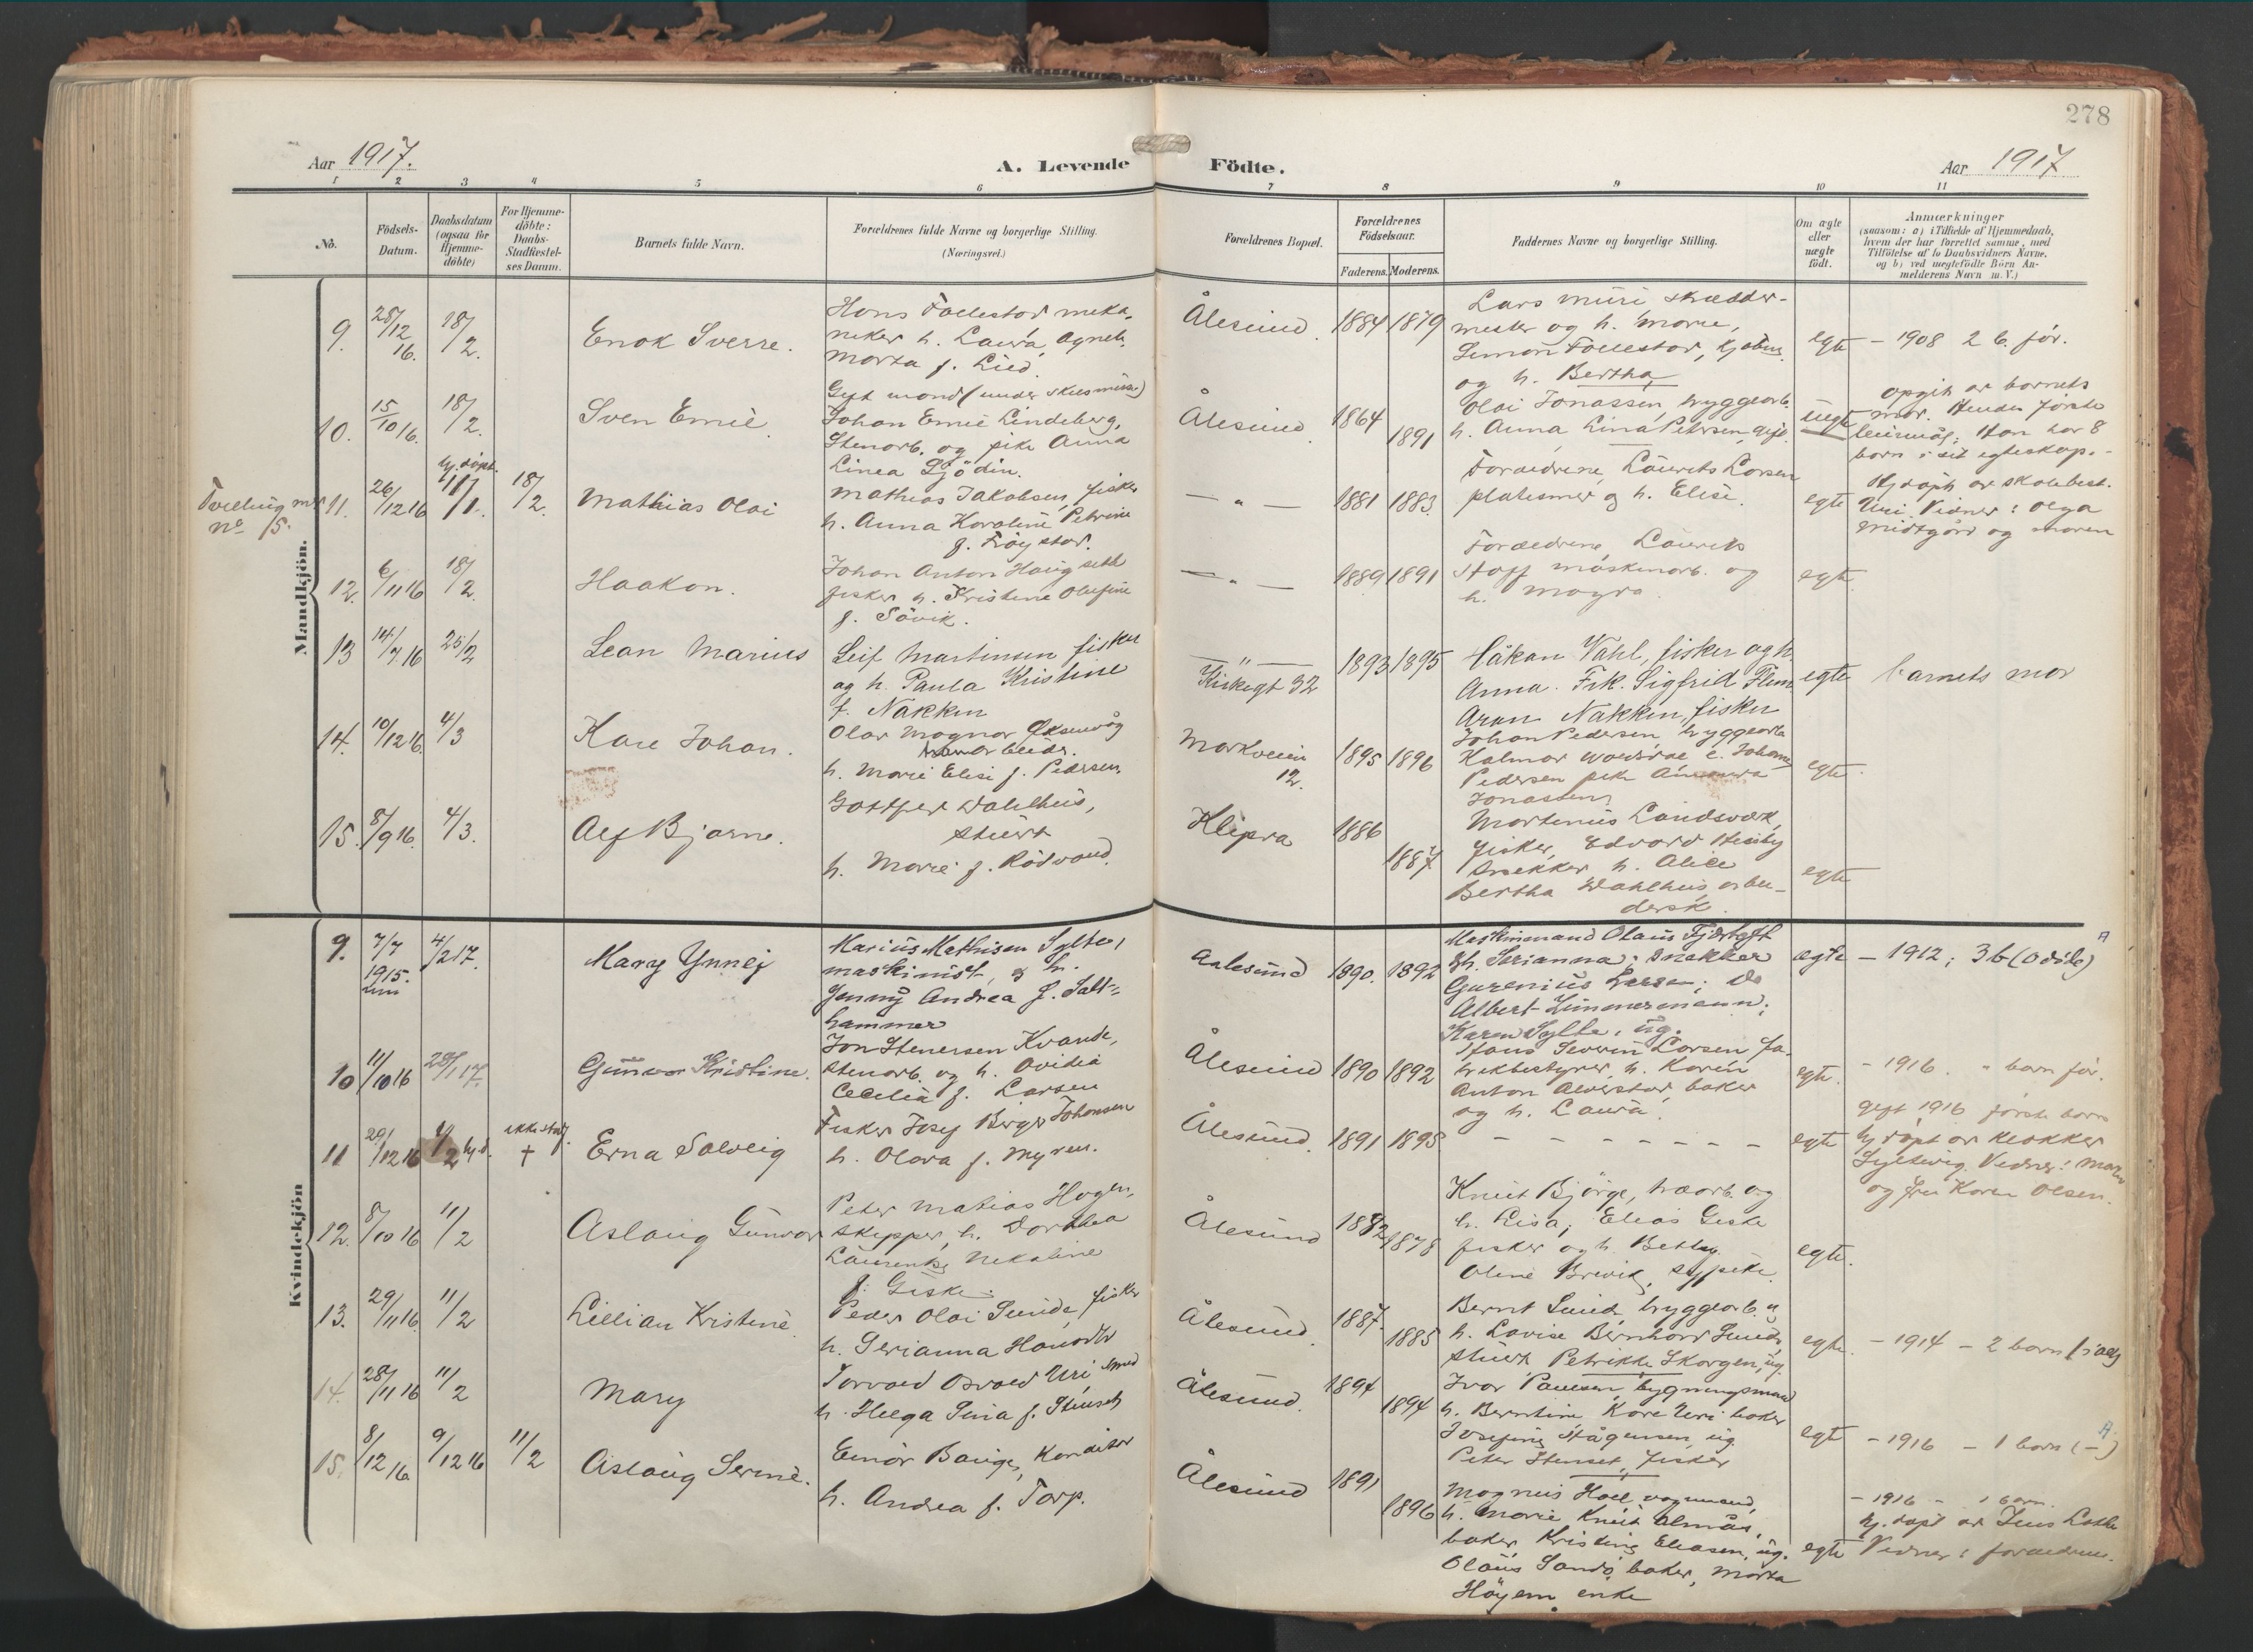 278
Aar 1917.
A. Levende Födte.
Aar 1917
1 2 3 4 5 6 7 8 9 10 11
No.
Födsels-Datum.
Daabsdatum (ogsaa for Hjemme-döbte)
For Hjemme-döbte: Daabs-Stadfæstel-ses Datum.
Barnets fulde Navn.
Forældrenes fulde Navne og borgerlige Stilling.
(Næringsvei.)
Forældrenes Bopæl.
Forældrenes Födselsaar.
Faderens. Moderens.
Faddernes Navne og borgerlige Stilling.
Om ægte eller uægte födt.
Anmærkninger
(saasom: a) i Tilfælde af Hjemmedaab,
hvem der har forrettet samme, med
Tilföielse af to Daabsvidners Navne.
og b) ved uægtefödte Börn An-
melderens Navn m. V.)
Mandkjön.
9. 28/12 16. 18/2. Enok Sverre.
Hans Follestad meka-
niker h. Laura Agnete
Marta f. Lied.
Ålesund. 1884 1879
Lars Muri skrædder-
mester og h. Marie,
Simon Follestad, kjøbm.
og h. Bertha
egte - 1908 2 b. før.
10. 15/10 16. 18/2. Sven Emil.
Gift mand (under skilsmisse)
Johan Emil Lindeberg,
Stenarb. og pike Anna
Linea Sjödin.
Ålesund. 1864 1891
Olai Jonassen, bryggearb.
h. Anna Lina Petersen,
uegte
opgit av barnets
mor. Hendes første
leiermål; Han har 8
barn i sit egteskap.-
Tvilling m.
no 15.
11. 26/12 16 hj. døpt. 1/1. 18/2. Mathias Olai
Mathias Jakobsen, fisker
h. Anna Karoline Petrine
f. Frøystad.
- " - 1881 1883.
Forældrene, Laurits Larsen
platesmed og h. Elise.
egte
Hj. døpt av skolebest.
Uri. Vidner: Olga
Midtgård og moren
12. 6/11 16 18/2. Haakon.
Johan Anton Haugseth
fisker h. Kristine Olufine
f. Søvik.
- " - 1889 1891
Forældrene, Laurits
Stoff maskinarb. og
h. Magna.
egte.
13 14/7 16 25/2 Lean Marius
Leif Martinsen fisker
og h. Paula Kristine
f. Nakken
- " -
Kirkegt 32 1893 1895
Håkan Vahl, fisker og h.
Anna. Frk. Sigfrid Flem
Aron Nakken, fisker
egte barnets mor
14. 10/12 16. 4/3 Kare Johan.
Olav Magnar Øksenvåg
arbeider.
h. Marie Elise f. Pedersen.
Markveien
12. 1895 1896
Johan Pedersen bryggearb.
Kalmar
Pedersen pike
Jonassen,
egte.
15. 8/9 16. 4/3. Alf Bjarne.
Gottfred Dahlhus,
stuert
h. Marie f. Rødvand.
Klipra 1886 1887
Martinus Landsverk,
fisker, Edvard Hesseby
snekker h. Alice
Bertha Dahlhus, arbei-
dersk.
egte
Kvindekjön
9. 7/7 1915. 4/2 17. Mary Ynnej
Marius Mathisen Sylte,
maskinist, og h.
Jenny Andrea f. Salt-
hammer
Aalesund 1890. 1892
Maskinmand Olaus Fjørtoft
& h. Serianna; snekker
Gurenius Larsen; Do
Albert Zimmermann;
Karen Sylte, ug.
ægte - 1912; 3 b (0 døde) A
10 11/10 16 28/1 17. Gunvor Kristine.
Jon Stenersen Kvande,
stenarb. og h. Ovidia
Cecilia f. Larsen
Ålesund 1890 1892
Hans Severin Larsen, fa-
brikbestyrer, h. Karen
Anton Alverstad, baker
og h. Laura.
egte. - 1916. - barn før.
11 20/12 16 1/2 hj d. ikke stadf. † Erna Solveig
Fisker Josef Birger Johansen
h. Olava f. Myren.
Ålesund. 1891 1895
- - - - - - -
egte
gift 1916 første barn
hj døpt av klokker
Syltevig. Vidner: Moren
og fru Karen Olsen.
12. 8/10 16 11/2 Aslaug Gunvor
Peter Matias Hagen,
skipper, h. Dorthea
Laurentse Nikoline
f. Giske.
Ålesund 1882 1878
Knut Bjørge, træarb. og
h. Lisa; Elias Giske
fisker og h. Betty.
Oline Brevik, sypike.
egte.
13. 29/11 16. 11/2 Lillian Kristine.
Peder Olai Sunde, fisker
h. Serianna
Ålesund. 1887. 1885
Bernt Sunde, bryggearb. og
h. Lovise Bernhard Sunde
stuert Petrikke Skorgen, ug.
egte. - 1914 - 2 barn
14. 28/11 16 11/2 Mary
Torvald Osvald Uri, smed
h. Helga Sina f. Stenseth
Ålesund. 1894 1894
Ivar Paulsen, bygningsmand
h. Berntine Kare Uri baker
Josefine Hågensen, ug.
Peter Stenset, fisker
egte - 1916 - 1 barn (-) A
15. 8/12 16 9/12 16 11/2 Aslaug Serine.
Einar Bauge, Konditor
h. Andrea f. Torp.
Ålesund 1891 1896
Magnus Hoel vognmand,
h. Marie Knut Almås,
baker Kristine Eliasen, ug.
Olaus Sandø baker, Marta
Høyem enke
egte
- 1916 - 1 barn.
hj. døpt av Jens
Vidner: forældrene.